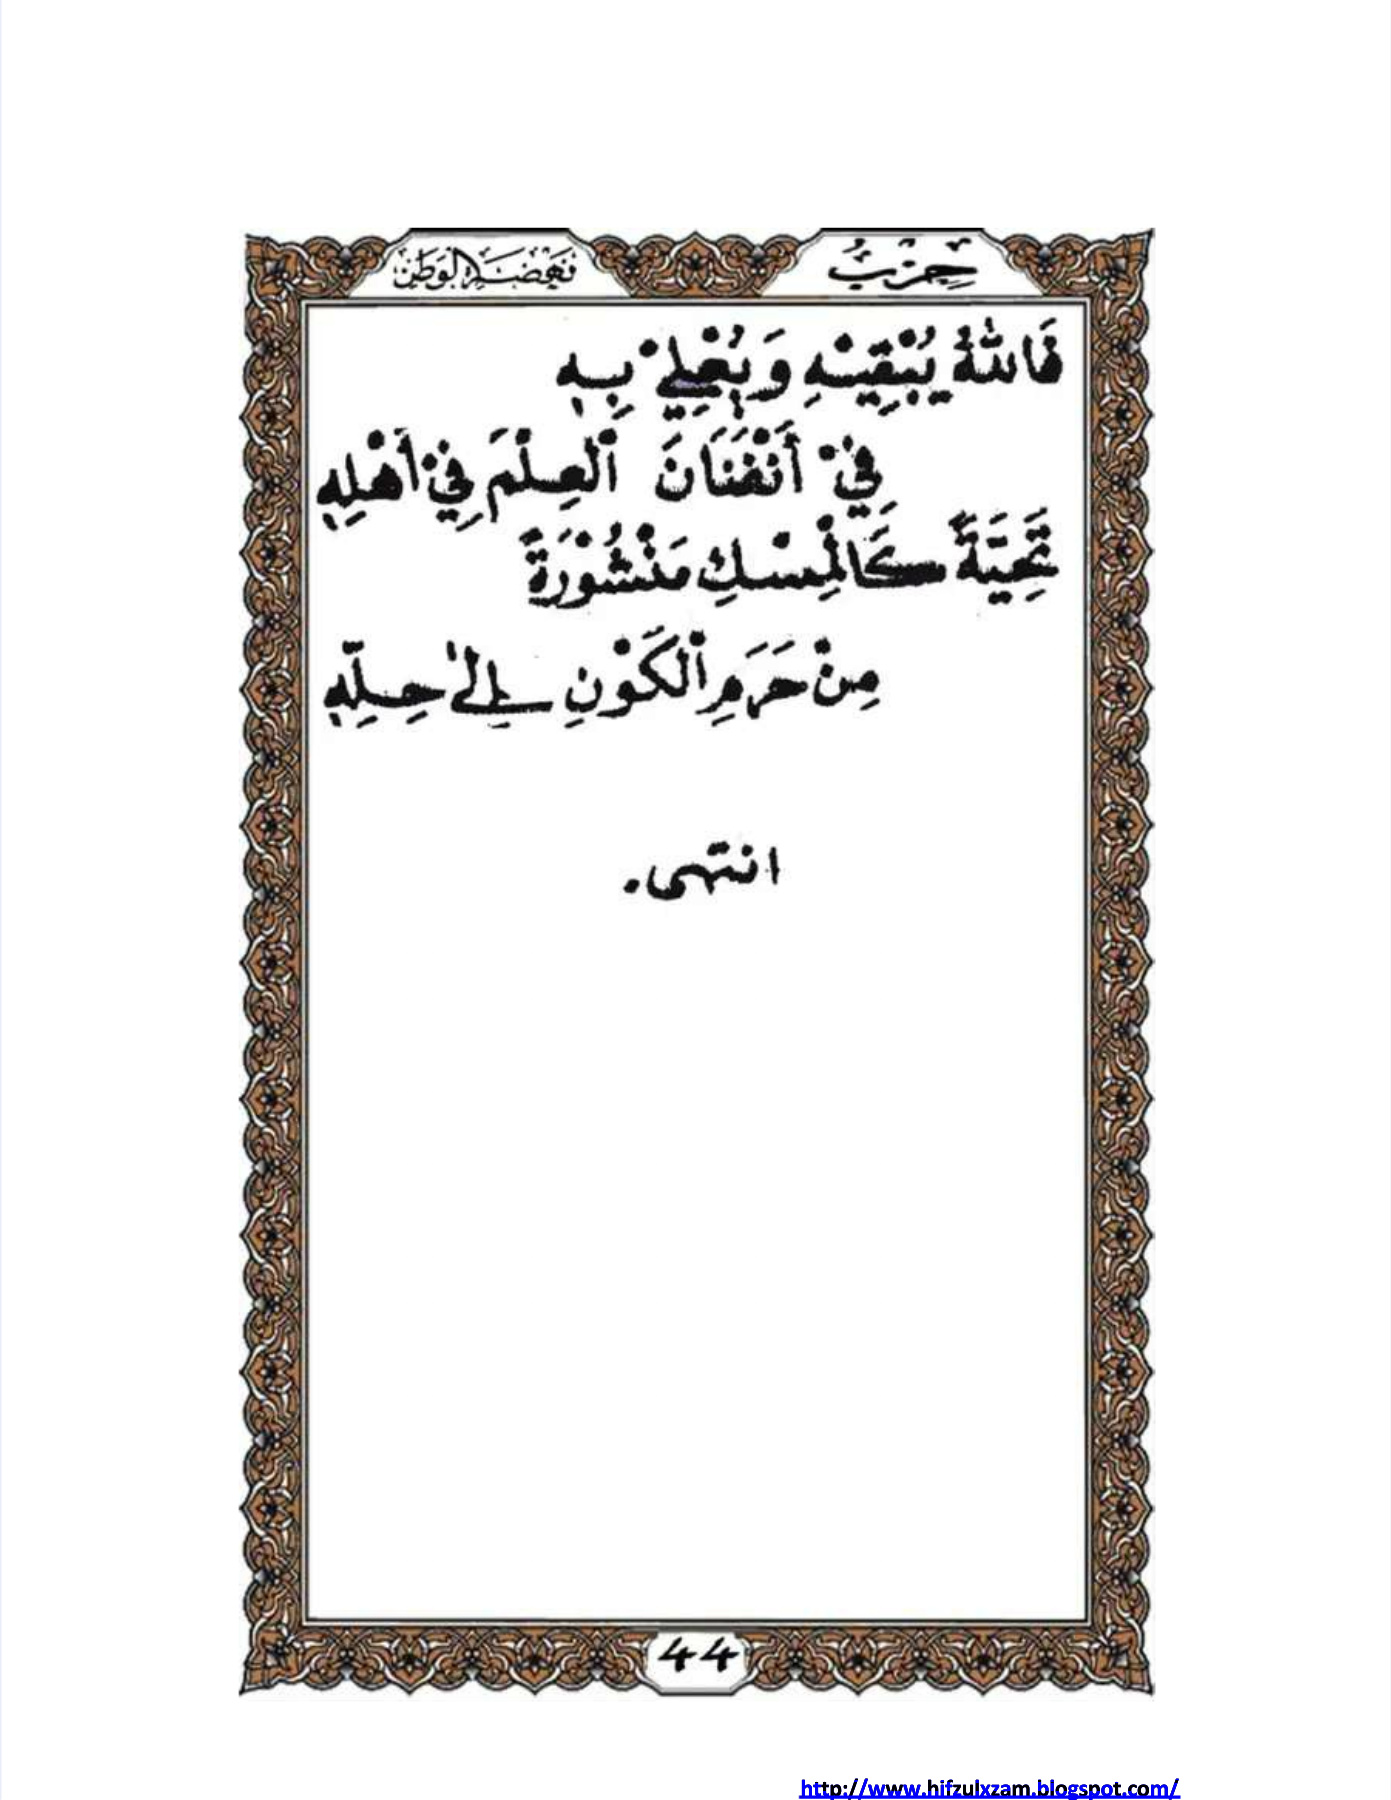 حِزْبُ نَهْضَةِ الْوَطَنِ
فَاللّٰهُ يُبْقِيْهِ وَيُعْلِيْ بِهِ
فِيْ أَنْفَنَانَ الْعِلْمَ فِيْ أَهْلِهِ
تَحِيَّةً كَالْمِسْكِ مَنْشُوْرَةً
مِنْ حَرَمِ الْكَوْنِ إِلٰى حِلِّهِ
انتهى.
44
http://www.hifzulxzam.blogspot.com/